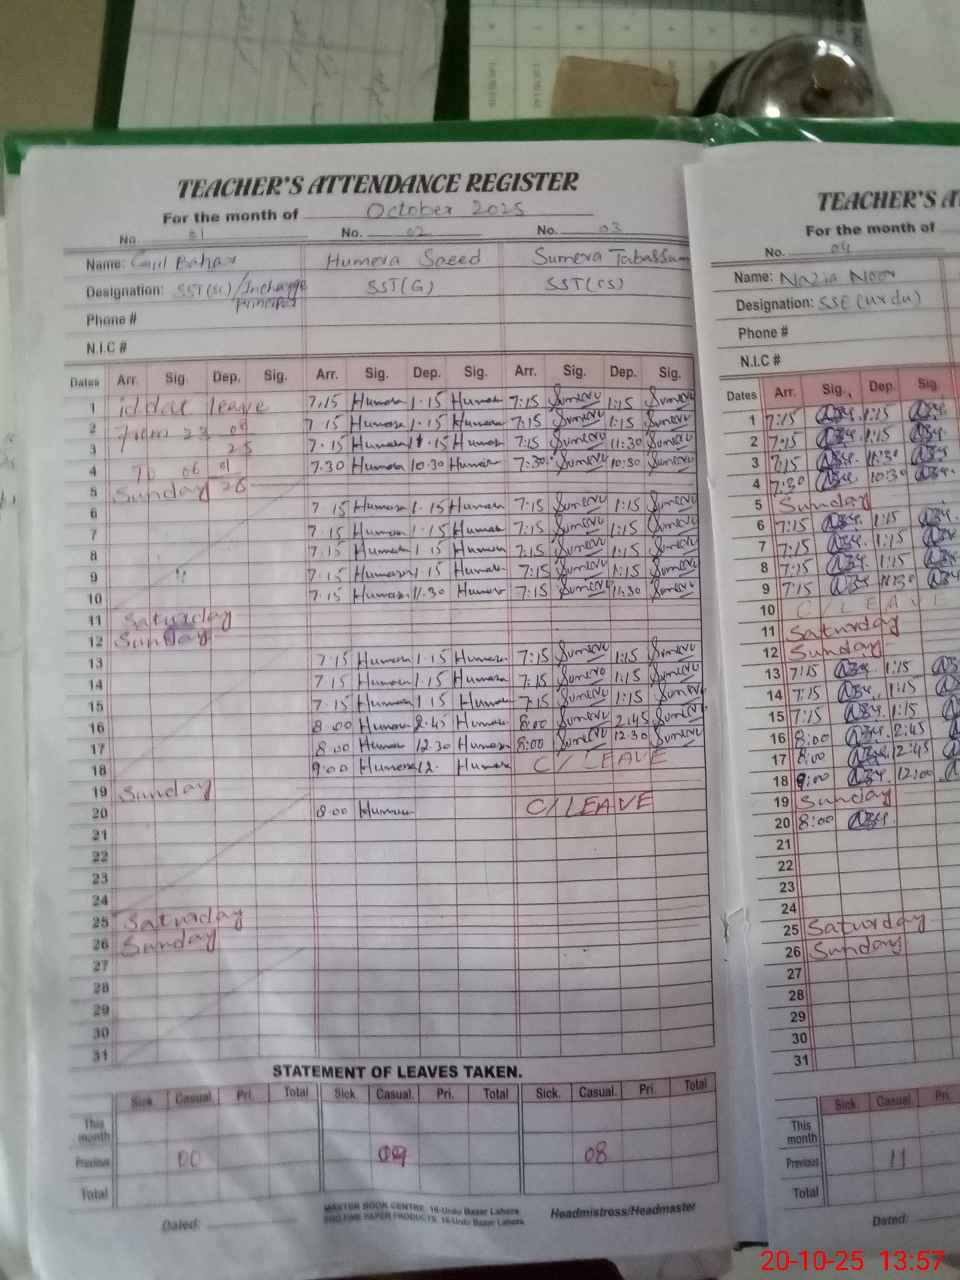 TEACHER'S ATTENDANCE REGISTER
For the month of October 2025
No. 01 No. 02 No. 03
Name: Gul Bahar Humera Saeed Sumera Tabassum
Designation: SST(Sc)/Incharge Principal SST(G) SST(CS)
Phone #
N.I.C #
Dates Arr. Sig. Dep. Sig. Arr. Sig. Dep. Sig. Arr. Sig. Dep. Sig.
1 iddat leave 7.15 Humera 1.15 Humera 7:15 Sumera 1:15 Sumera
2 From 23 09 7.15 Humera 1.15 Humera 7:15 Sumera 1:15 Sumera
3 25 7.15 Humera 11.15 Humera 7:15 Sumera 11:30 Sumera
4 To 06 01 7.30 Humera 10.30 Humera 7:30 Sumera 10:30 Sumera
5 Sunday 26
6 7.15 Humera 1.15 Humera 7:15 Sumera 1:15 Sumera
7 7.15 Humera 1.15 Humera 7:15 Sumera 1:15 Sumera
8 7.15 Humera 1.15 Humera 7:15 Sumera 1:15 Sumera
9 7.15 Humera 1.15 Humera 7:15 Sumera 1:15 Sumera
10 7.15 Humera 11.30 Humera 7:15 Sumera 11:30 Sumera
11 Saturday
12 Sunday
13 7.15 Humera 1.15 Humera 7:15 Sumera 1:15 Sumera
14 7.15 Humera 1.15 Humera 7:15 Sumera 1:15 Sumera
15 7.15 Humera 1.15 Humera 7:15 Sumera 1:15 Sumera
16 8.00 Humera 2.45 Humera 8:00 Sumera 2:45 Sumera
17 8.00 Humera 12.30 Humera 8:00 Sumera 12:30 Sumera
18 9.00 Humera 12. Humera C/LEAVE
19 Sunday
20 8.00 Humera C/LEAVE
21
22
23
24
25 Saturday
26 Sunday
27
28
29
30
31
STATEMENT OF LEAVES TAKEN.
Sick. Casual. Pri. Total Sick. Casual. Pri. Total Sick. Casual. Pri. Total
This month
Previous 00 09 08
Total
MASTER BOOK CENTRE, 16-Urdu Bazar Lahore
PRO.FINE PAPER PRODUCTS, 16-Urdu Bazar Lahore.
Dated: Headmistress/Headmaster
TEACHER'S AT
For the month of
No. 04
Name: Nazia Noor
Designation: SSE (Urdu)
Phone #
N.I.C #
Dates Arr. Sig. Dep. Sig.
1 7:15 1:15
2 7:15 1:15
3 7:15 11:30
4 7:30 10:30
5 Sunday
6 7:15 1:15
7 7:15 1:15
8 7:15 1:15
9 7:15 11:30
10 C/LEAVE
11 Saturday
12 Sunday
13 7:15 1:15
14 7:15 1:15
15 7:15 1:15
16 8:00 2:45
17 8:00 12:45
18 9:00 12:00
19 Sunday
20 8:00
21
22
23
24
25 Saturday
26 Sunday
27
28
29
30
31
Sick. Casual. Pri.
This month
Previous 11
Total
Dated:
20-10-25 13:57